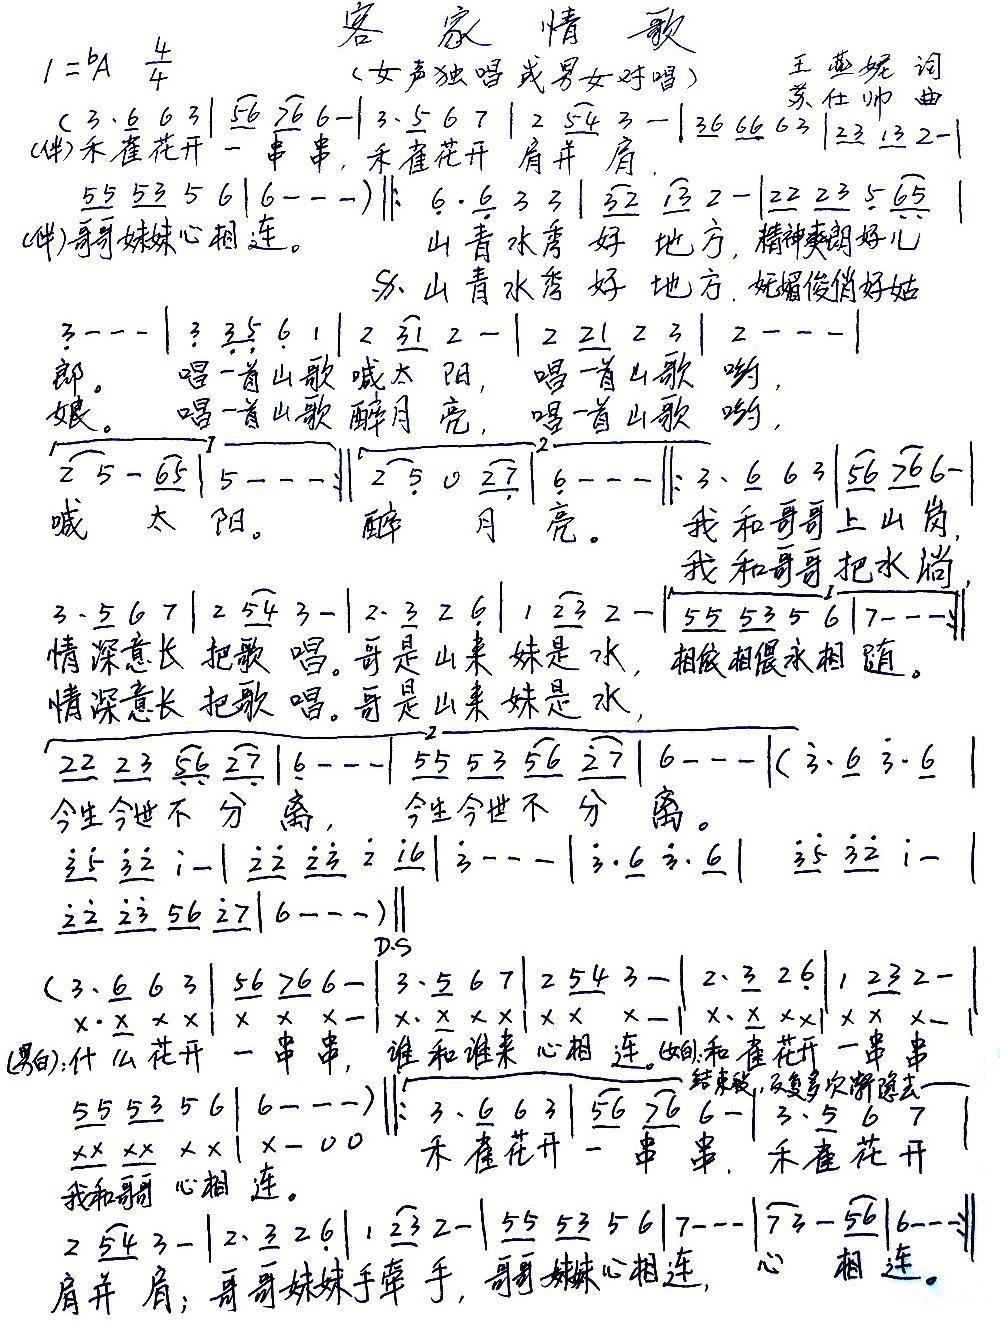 客家情歌
1=ᵇA 4/4 （女声独唱或男女对唱） 王燕妮 词
苏仕帅 曲
(3·6 6 3|56 766-|3·5 6 7|2 54 3-|36 66 63|23 13 2-|
(伴)禾雀花开一串串，禾雀花开肩并肩，
55 53 5 6|6---)‖: 6·6 3 3|32 13 2-|22 23 5 65|
(伴)哥哥妹妹心相连。 山青水秀好地方，精神爽朗好儿
𝄋 山青水秀好地方，妩媚俊俏好姑
3---|3 35 6 1|2 31 2-|2 21 2 3|2---|
郎。 唱一首山歌喊太阳， 唱一首山歌哟，
娘。 唱一首山歌醉月亮， 唱一首山歌哟，
1 2
2 5-65|5---:‖2 5 0 27|6---‖: 3·6 6 3|56 766-|
喊太阳。 醉月亮。 我和哥哥上山岗，
我和哥哥把水淌，
3·5 6 7|2 54 3-|2·3 2 6|1 23 2-|55 53 5 6|7---:‖
情深意长把歌唱。哥是山来妹是水，相依相偎永相随。
情深意长把歌唱。哥是山来妹是水，
2
22 23 56 27|6---|55 53 56 2̇7|6---|(3̇·6 3̇·6|
今生今世不分离， 今生今世不分离。
3̇5 3̇2̇ 1̇-|2̇2̇ 2̇3̇ 2̇ 1̇6|3̇---|3̇·6 3̇·6| 3̇5 3̇2̇ 1̇-|
2̇2̇ 2̇3̇ 56 2̇7|6---)‖
D.S
(3·6 6 3|56 766-|3·5 6 7|2 54 3-|2·3 26|1 23 2-|
x·x x x|x x x-|x·x x x|x x x-|x·x xx|x x x-|
(男白):什么花开一串串，谁和谁来心相连。(女白):和雀花开一串串
结束段，反复多次渐隐去
55 53 5 6|6---)‖: 3·6 6 3|56 76 6-|3·5 6 7|
xx xx xx|x-00 禾雀花开一串串，禾雀花开
我和哥哥心相连。
2 54 3-|2·3 26|1 23 2-|55 53 56|7---|73-56|6---:‖
肩并肩；哥哥妹妹手牵手，哥哥妹妹心相连，心相连。